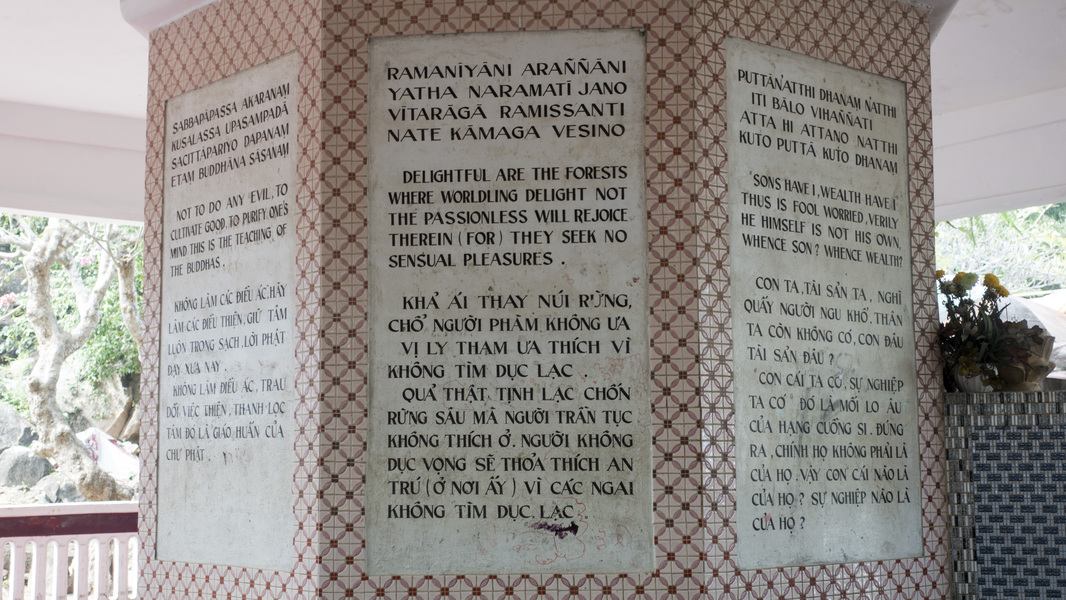 SABBAPĀPASSA AKARAṆAṂ
KUSALASSA UPASAMPADĀ
SACITTĀPARIYO DAPANAṂ
ETAṂ BUDDHĀNA SĀSANAṂ
NOT TO DO ANY EVIL, TO
CULTIVATE GOOD TO PURIFY ONE'S
MIND THIS IS THE TEACHING OF
THE BUDDHAS.
KHÔNG LÀM CÁC ĐIỀU ÁC, HÃY
LÀM CÁC ĐIỀU THIỆN, GIỮ TÂM
LUÔN TRONG SẠCH, LỜI PHẬT
DẠY XƯA NAY.
KHÔNG LÀM ĐIỀU ÁC, TRAU
DỒI VIỆC THIỆN, THANH LỌC
TÂM ĐÓ LÀ GIÁO HUẤN CỦA
CHƯ PHẬT.
RAMANĪYĀNI ARAÑÑĀNI
YATHA NARAMATĪ JANO
VĪTARĀGĀ RAMISSANTI
NATE KĀMAGA VESINO
DELIGHTFUL ARE THE FORESTS
WHERE WORLDLING DELIGHT NOT
THE PASSIONLESS WILL REJOICE
THEREIN (FOR) THEY SEEK NO
SENSUAL PLEASURES .
KHẢ ÁI THAY NÚI RỪNG,
CHỖ NGƯỜI PHÀM KHÔNG ƯA
VỊ LY THAM ƯA THÍCH VÌ
KHÔNG TÌM DỤC LẠC .
QUẢ THẬT TỊNH LẠC CHỐN
RỪNG SÂU MÀ NGƯỜI TRẦN TỤC
KHÔNG THÍCH Ở. NGƯỜI KHÔNG
DỤC VỌNG SẼ THỎA THÍCH AN
TRÚ (Ở NƠI ẤY) VÌ CÁC NGÀI
KHÔNG TÌM DỤC LẠC
PUTTĀNATTHI DHANAṂ NATTHI
ITI BĀLO VIHAÑÑATI
ATTA HI ATTANO NATTHI
KUTO PUTTĀ KUTO DHANAṂ
"SONS HAVE I, WEALTH HAVE I"
THUS IS FOOL WORRIED, VERILY
HE HIMSELF IS NOT HIS OWN,
WHENCE SON? WHENCE WEALTH?
CON TA, TÀI SẢN TA, NGHĨ
QUẤY NGƯỜI NGU KHỔ, THÂN
TA CÒN KHÔNG CÓ, CON ĐÂU
TÀI SẢN ĐÂU ?
CON CÁI TA CÓ, SỰ NGHIỆP
TA CÓ ĐÓ LÀ MỐI LO ÂU
CỦA HẠNG CUỒNG SI. ĐÚNG
RA, CHÍNH HỌ KHÔNG PHẢI LÀ
CỦA HỌ. VẬY CON CÁI NÀO LÀ
CỦA HỌ ? SỰ NGHIỆP NÀO LÀ
CỦA HỌ ?